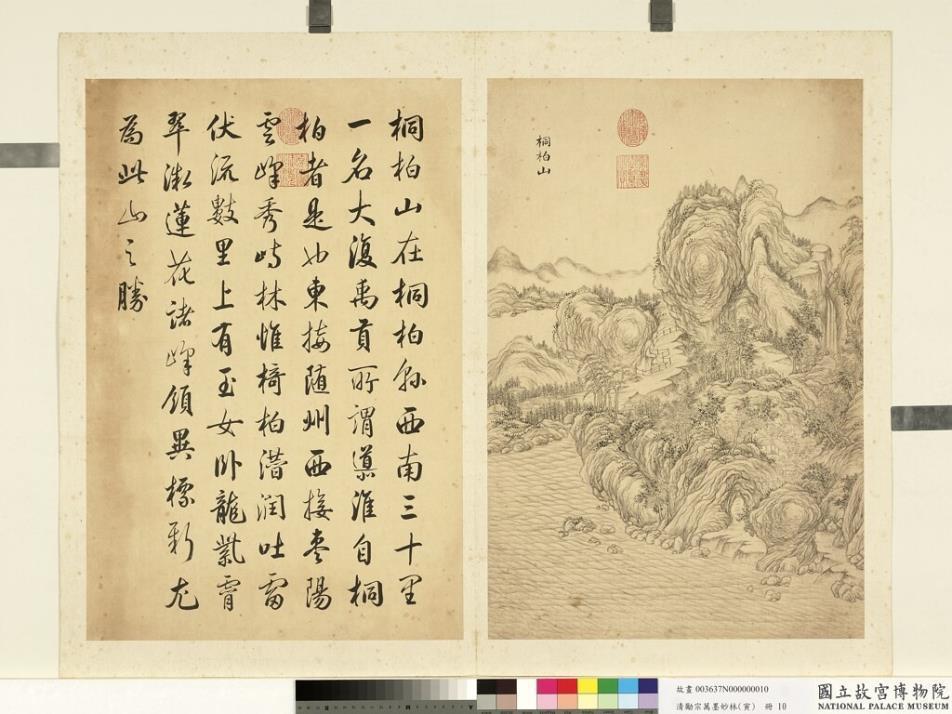 桐柏山
桐柏山在桐柏縣西南三十里
一名大復禹貢所謂導淮自桐
柏者是也東接随州西接棗陽
雲峰秀峙林惟椅柏潛潤吐雷
伏流數里上有玉女卧龍紫霄
翠微蓮花諸峰領異標新尤
為此山之勝
故畫 003637N000000010
清勵宗萬墨妙林(寅) 冊 10
國立故宮博物院
NATIONAL PALACE MUSEUM